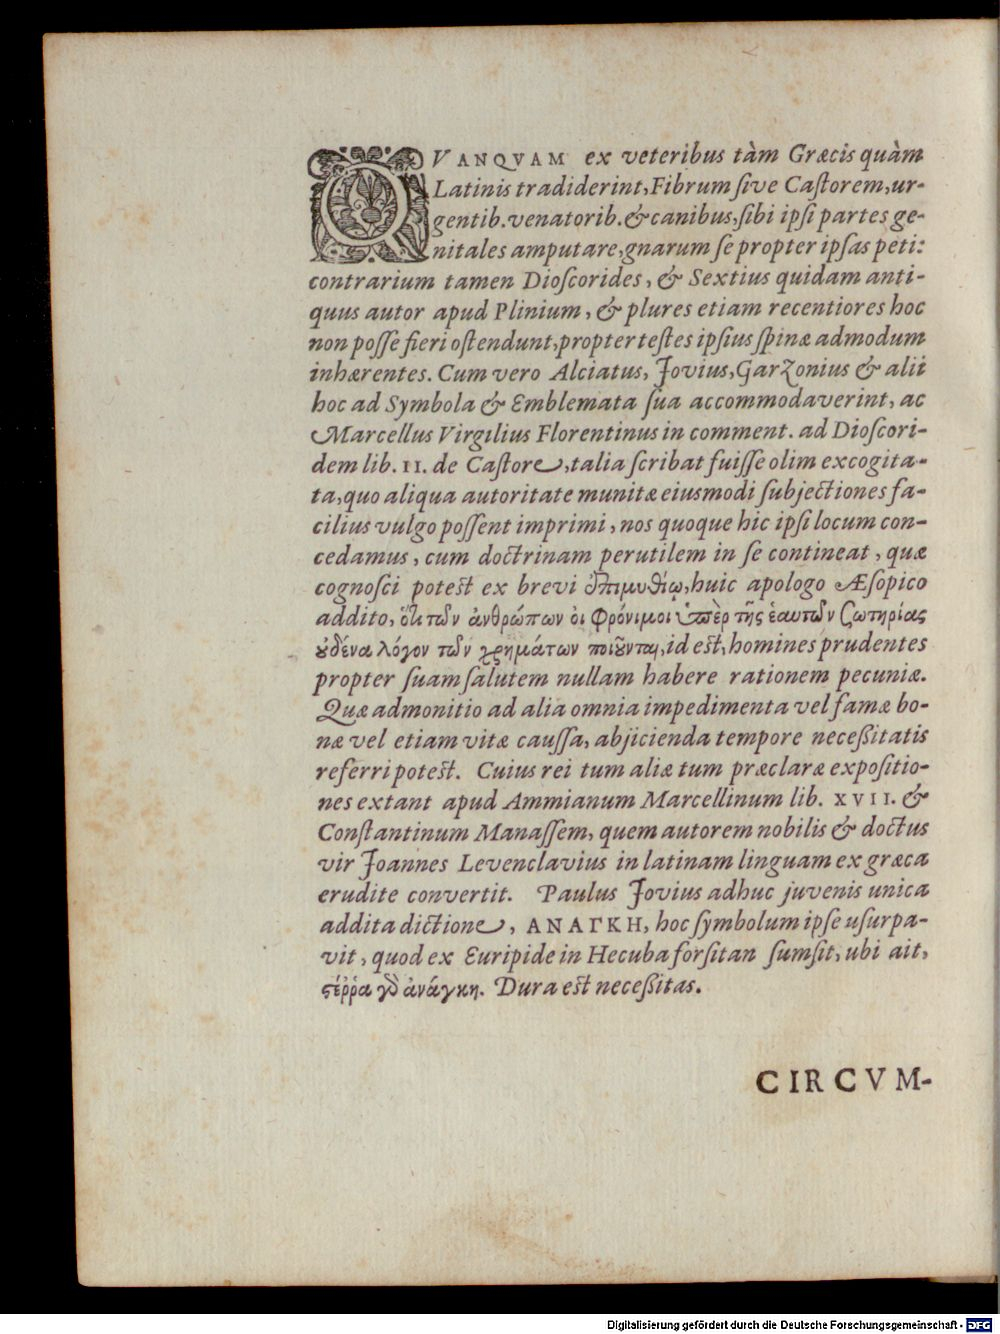 QVANQVAM ex veteribus tàm Græcis quàm
Latinis tradiderint, Fibrum ſive Caſtorem, ur-
gentib. venatorib. & canibus, ſibi ipſi partes ge-
nitales amputare, gnarum ſe propter ipſas peti:
contrarium tamen Dioſcorides, & Sextius quidam anti-
quus autor apud Plinium, & plures etiam recentiores hoc
non poſſe fieri oſtendunt, propter teſtes ipſius ſpinæ admodum
inhærentes. Cum vero Alciatus, Jovius, Garzonius & alii
hoc ad Symbola & Emblemata ſua accommodaverint, ac
Marcellus Virgilius Florentinus in comment. ad Dioſcori-
dem lib. II. de Caſtore, talia ſcribat fuiſſe olim excogita-
ta, quo aliqua autoritate munitæ eiusmodi ſubjectiones fa-
cilius vulgo poſſent imprimi, nos quoque hic ipſi locum con-
cedamus, cum doctrinam perutilem in ſe contineat, quæ
cognoſci poteſt ex brevi ἐπιμυθίῳ, huic apologo Æſopico
addito, ὅτι τῶν ἀνθρώπων οἱ φρόνιμοι ὑπὲρ τῆς ἑαυτῶν σωτηρίας
οὐδένα λόγον τῶν χρημάτων ποιοῦνται, id eſt, homines prudentes
propter ſuam ſalutem nullam habere rationem pecuniæ.
Quæ admonitio ad alia omnia impedimenta vel famæ bo-
næ vel etiam vitæ cauſſa, abjicienda tempore neceßitatis
referri poteſt. Cuius rei tum aliæ tum præclaræ expoſitio-
nes extant apud Ammianum Marcellinum lib. XVII. &
Conſtantinum Manaſſem, quem autorem nobilis & doctus
vir Joannes Levenclavius in latinam linguam ex græca
erudite convertit. Paulus Jovius adhuc juvenis unica
addita dictione, ΑΝΑΓΚΗ, hoc ſymbolum ipſe uſurpa-
vit, quod ex Euripide in Hecuba forſitan ſumſit, ubi ait,
στέῤῥα γὰρ ἀνάγκη. Dura eſt neceßitas.
CIRCVM-
Digitalisierung gefördert durch die Deutsche Forschungsgemeinschaft - DFG